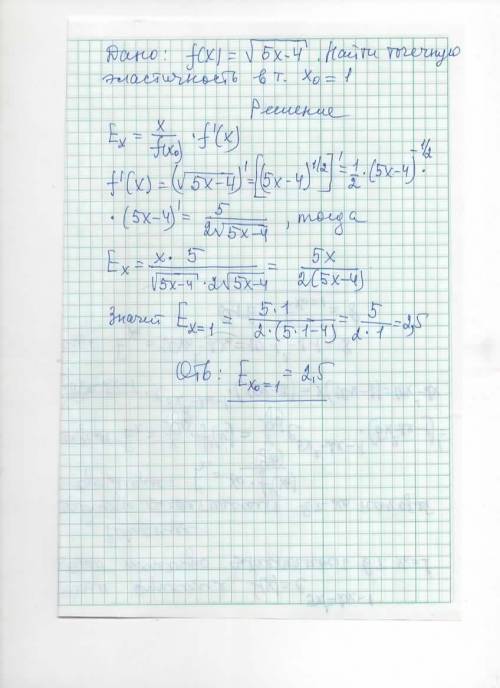 Дано: f(x) = √5x-4. Найти точечную
эластичность в т. x₀ = 1
Решение
Eₓ = x/f(x₀) · f'(x)
f'(x) = (√5x-4)' = [(5x-4)^1/2]' = 1/2 · (5x-4)^-1/2 ·
· (5x-4)' = 5/2√5x-4 , тогда
Eₓ = x · 5/√5x-4 · 2√5x-4 = 5x/2(5x-4)
Значит Eₓ₌₁ = 5·1/2·(5·1-4) = 5/2·1 = 2,5
Отв: Eₓ₀₌₁ = 2,5